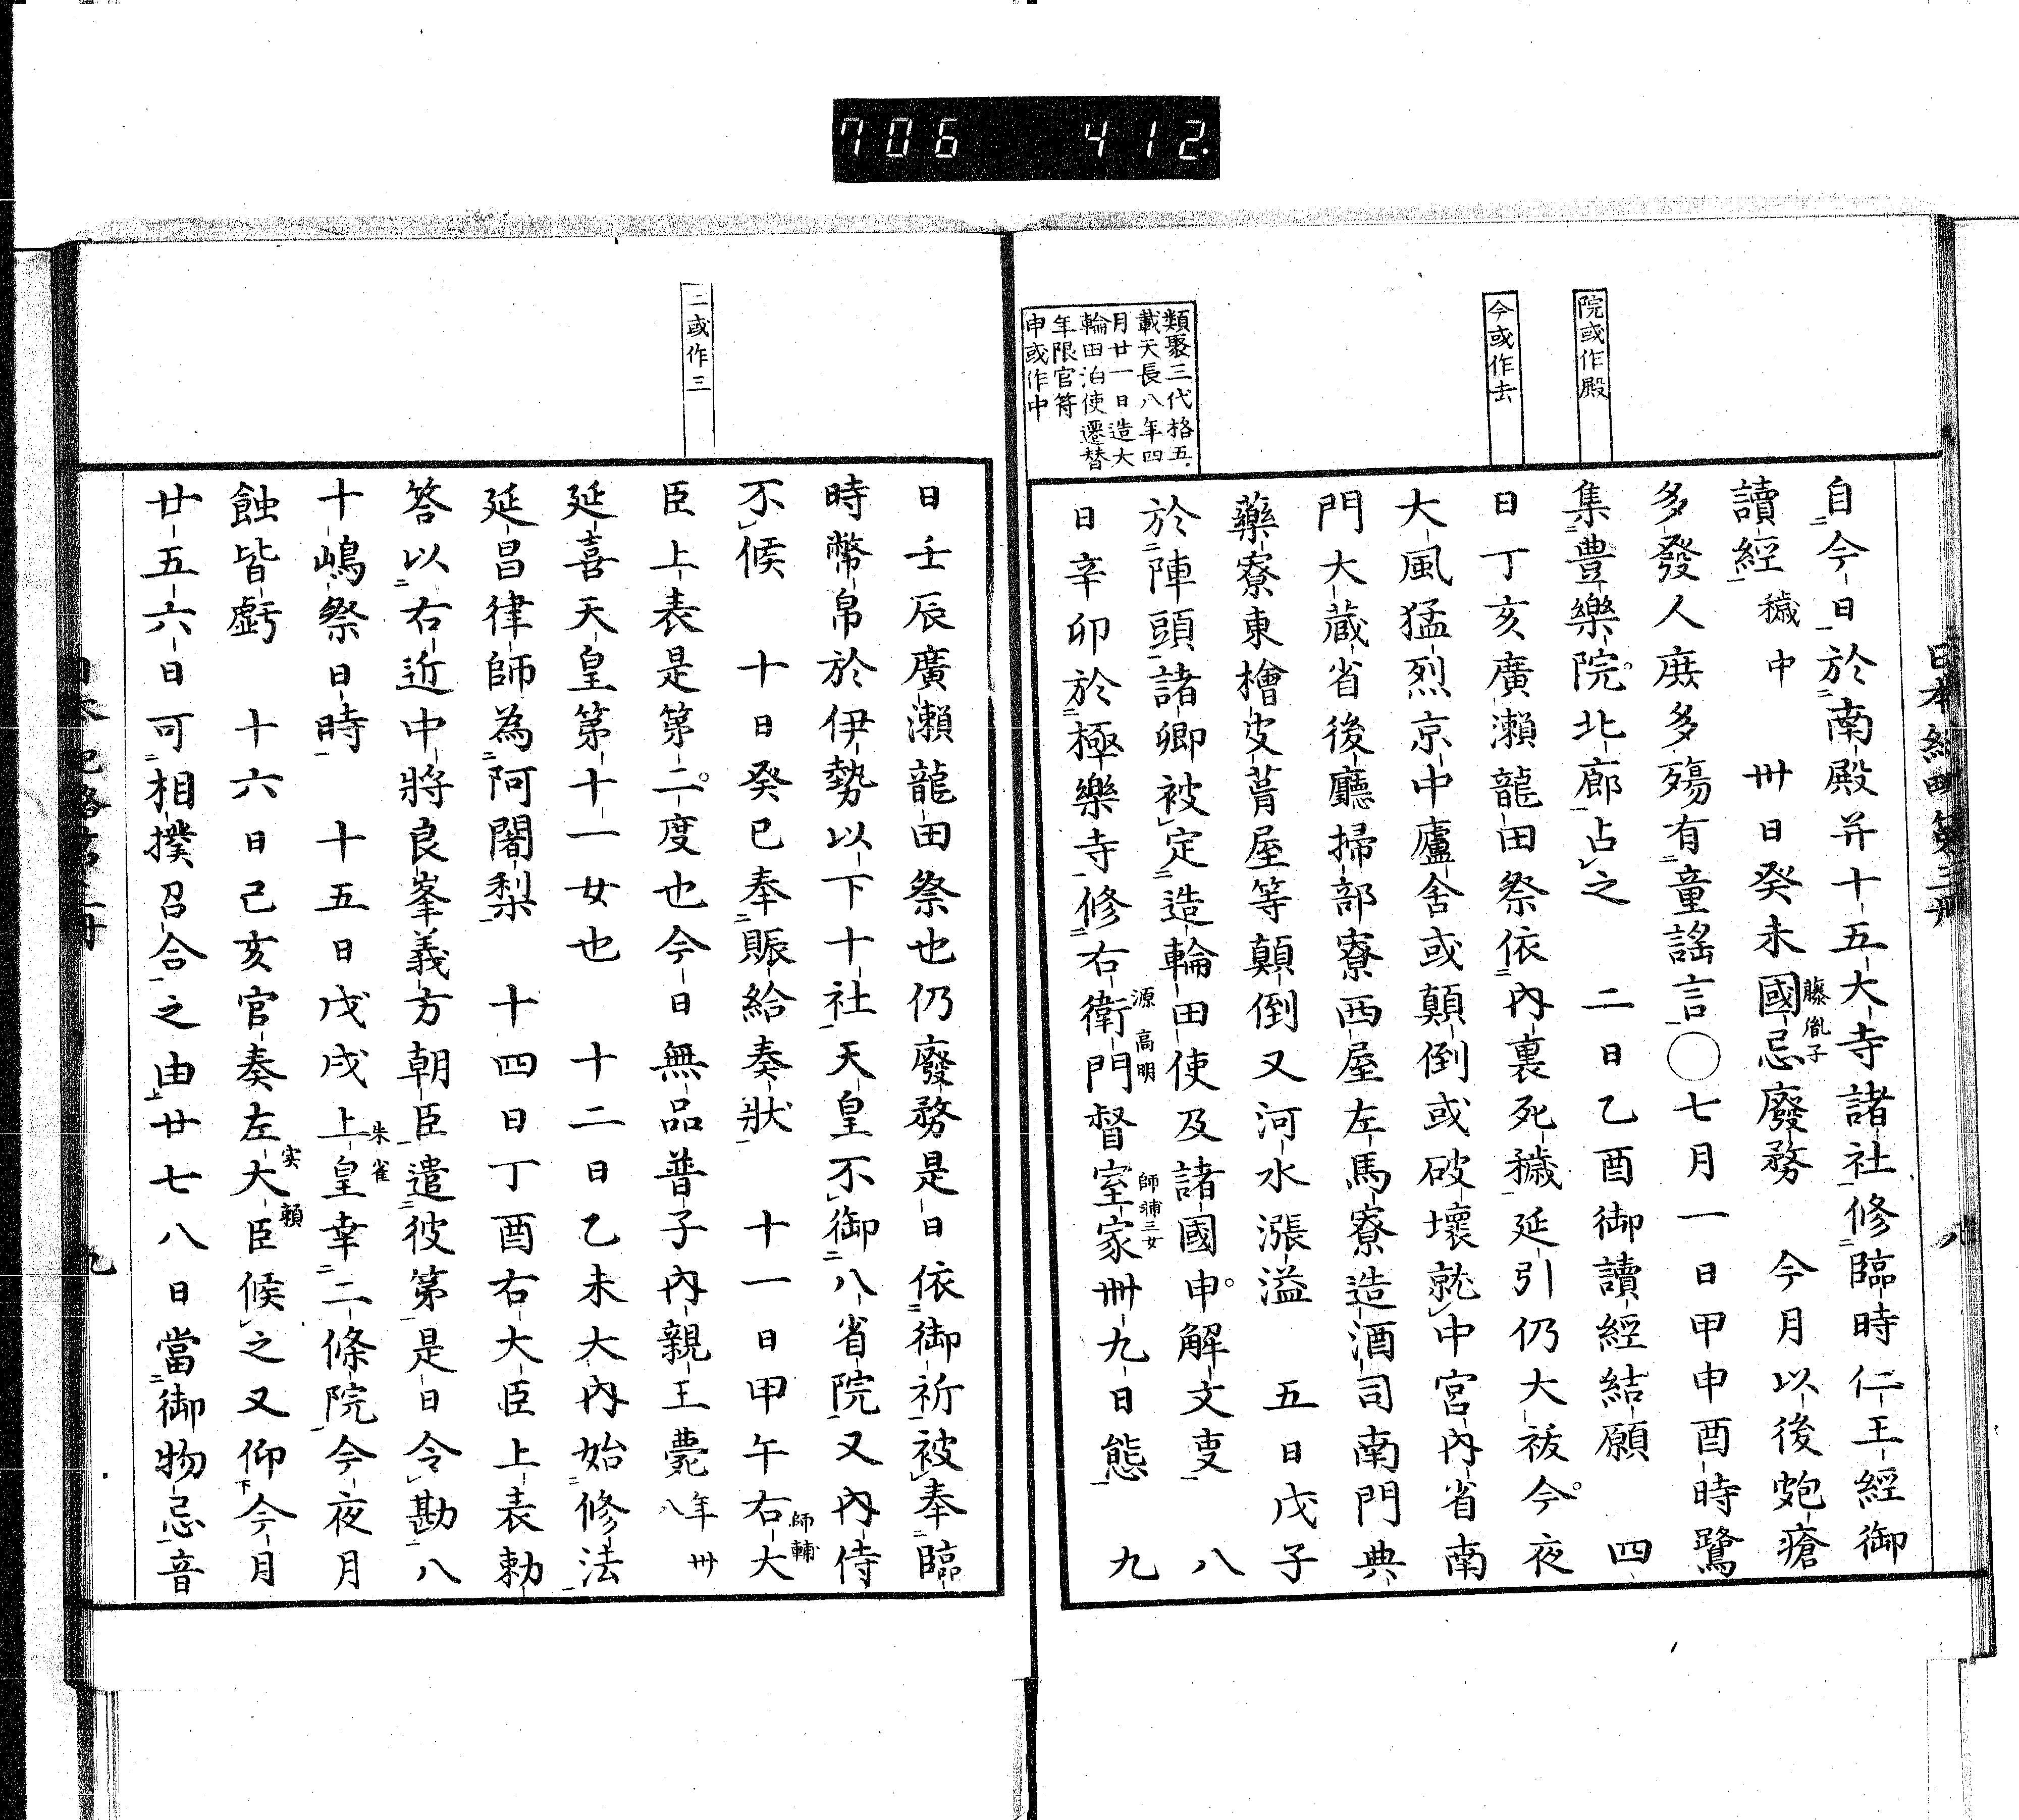 706 412.
日本紀略第三冊
八
院或作殿
今或作去
類聚三代格五
載天長八年四
月廿一日造大
輪田泊使遷替
年限官符
申或作中
自今日於南殿并十五大寺諸社修臨時仁王經御
讀經穢中 卅日癸未國忌廢務 今月以後皰瘡
藤胤子
多發人庶多殤有童謠言○七月一日甲申酉時鷺
集豊樂院北廊占之 二日乙酉御讀經結願 四
日丁亥廣瀨龍田祭依內裏死穢延引仍大祓今夜
大風猛烈京中廬舍或顛倒或破壞就中宮內省南
門大蔵省後廳掃部寮西屋左馬寮造酒司南門典
藥寮東檜皮葺屋等顛倒又河水漲溢 五日戊子
於陣頭諸卿被定造輪田使及諸國申解文叓 八
日辛卯於極樂寺修右衛門督室家卌九日態 九
源高明
師輔三女
二或作三
日壬辰廣瀨龍田祭也仍廢務是日依御祈被奉臨
時幣帛於伊勢以下十社天皇不御八省院又內侍
不候 十日癸巳奉賑給奏狀 十一日甲午右大
師輔
臣上表是第二度也今日無品普子內親王薨年卅八
延喜天皇第十一女也 十二日乙未大內始修法
延昌律師為阿闍梨 十四日丁酉右大臣上表勅
答以右近中將良峯義方朝臣遣彼第是日令勘八
十嶋祭日時 十五日戊戌上皇幸二條院今夜月
朱雀
蝕皆虧 十六日己亥官奏左大臣候之又仰今月
实頼
廿五六日可相撲召合之由廿七八日當御物忌音
日本紀略第三冊
九